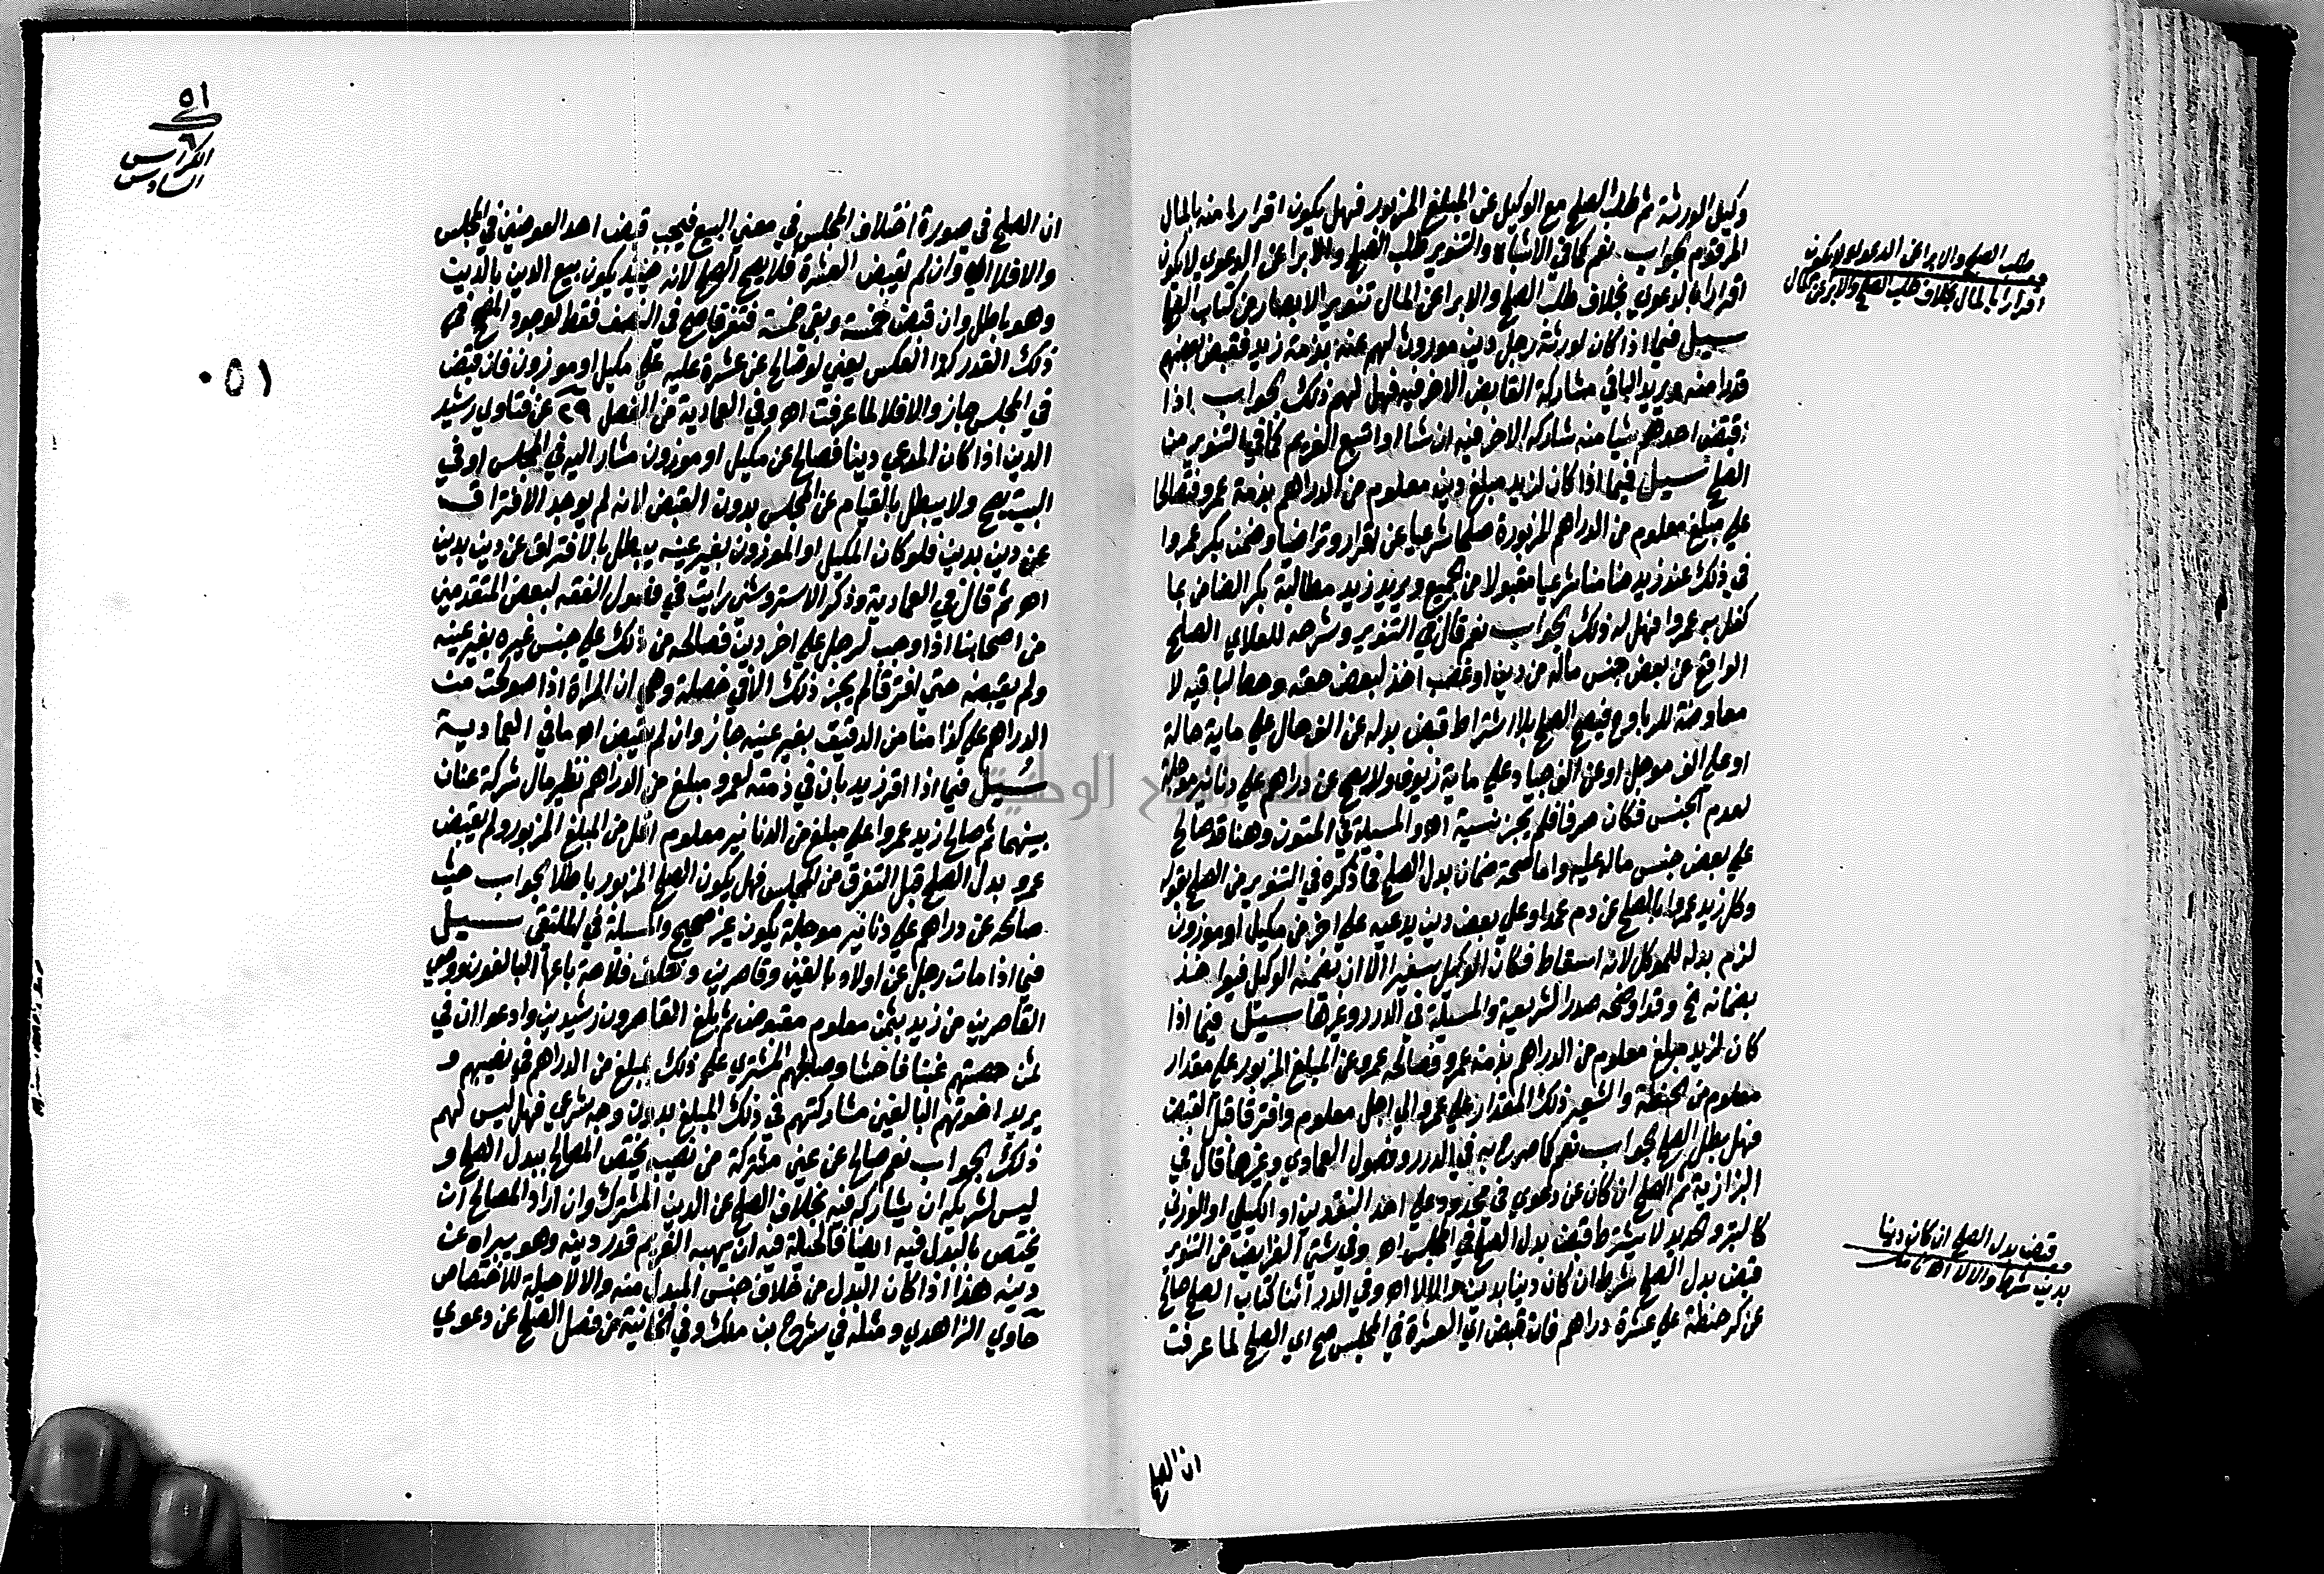 وكيل الورثة ثم طلب الصلح مع الوكيل عن المبلغ المزبور فهل يكون اقرارا منه بالمال
المرقوم الجواب نعم كما في الاشباه والتنوير طلب الصلح والابرا عن الدعوي لا يكون
اقرارا بالدعوي بخلاف طلب الصلح والابرا عن المال تنوير الابصار من كتاب الصلح
سيل فيما اذا كان لورثة رجل دين موروث لهم عنه بذمة زيد فقبض بعضهم
قدرا منه ويريد الباقي مشاركة القابض الاخر فيه فهل لهم ذلك الجواب اذا
قبض احدهم شيا منه شاركه الاخر فيه ان شا او اتبع الغريم كما في التنوير من
الصلح سيل فيما اذا كان لزيد مبلغ دين معلوم من الدراهم بذمة عمرو فتصالحا
علي مبلغ معلوم من الدراهم المزبورة صلحا شرعيا عن اقرار وتراضيا وضمن بكر عمروا
في ذلك عند زيد ضمانا شرعيا مقبولا من الجميع ويريد زيد مطالبة بكر الضامن بما
كفل به عمروا فهل له ذلك الجواب نعم قال في التنوير وشرحه للعلاي الصلح
الواقع عن بعض جنس ماله من دين او غصب اخذ لبعض حقه وحط لباقيه لا
معاوضة للربا وح فيصح الصلح بلا اشتراط قبض بدله عن الف حال علي ماية حالة
او علي الف موجل او عن الف جياد علي ماية زيوف ولا يصح عن دراهم علي دنانير موجلة
لعدم الجنس فكان صرفا فلم يجز نسية اه والمسيلة في المتون وهنا قد صالح
علي بعض جنس ماله عليه واما صحة ضمان بدل الصلح فما ذكره في التنوير من الصلح بقوله
وكل زيد عمروا بالصلح عن دم عمد او علي بعض دين يدعيه علي اخر من مكيل او موزون
لزم بدله للموكل لانه اسقاط فكان الوكيل سفيرا الا ان يضمنه الوكيل فيواخذ
بضمانه الخ وقد اوضحه صدر الشريعة والمسيلة في الدرر وغيرها سيل فيما اذا
كان لزيد مبلغ معلوم من الدراهم بذمة عمرو فصالحه عمرو عن المبلغ المزبور علي مقدار
معلوم من الحنطة والشعير ذلك المقدار علي عمرو الي اجل معلوم وافترقا قبل القبض
فهل بطل الصلح الجواب نعم كما صرح به في الدرر وفصول العمادي وغيرها قال في
البزازية ثم الصلح ان كان عن دعوي في محدود علي احد النقدين او الكيلي او الوزني
كالبر والحديد لا يشترط قبض بدل الصلح في المجلس اه وفي شتي الفرايض من التنوير
قبض بدل الصلح شرط ان كان دينا بدين والا لا اه وفي الدرر اثنا كتاب الصلح صالح
عن كر حنطة علي عشرة دراهم فان قبض اي العشرة في المجلس صح اي الصلح لما عرفت
طلب الصلح والابرا عن الدعوي لا يكون
اقرارا بالمال بخلاف طلب الصلح والابرا عن المال
قبض بدل الصلح ان كان دينا
بدين شرط والا لا اه
ان الصلح
٥١
الكراس
السادس
٠٥١
ان الصلح في صورة اختلاف الجنس في معني البيع فيجب قبض احد العوضين في المجلس
والا فلا اي وان لم يقبض العشرة فلا يصح الصلح لانه حينيذ يكون بيع الدين بالدين
وهو باطل وان قبض خمسة وبقي خمسة فتفرقا صح في النصف فقط لوجود المصحح في
ذلك القدر كذا العكس يعني لو صالح عن عشرة عليه علي مكيل او موزون فان قبض
في المجلس جاز والا فلا لما عرفت اه وفي العمادية من الفصل ٢٩ عن فتاوي رشيد
الدين اذا كان المدعي دينا فصالح عن مكيل او موزون مشار اليه في المجلس او في
البيت يصح ولا يبطل بالقيام عن المجلس بدون القبض لانه لم يوجد الافتراق
عن دين بدين فلو كان المكيل او الموزون بغير عينه يبطل بالافتراق عن دين بدين
اه ثم قال في العمادية وذكر الاستروشني رايت في فصول الفقه لبعض المتقدمين
من اصحابنا اذا وجب لرجل علي اخر دين فصالحه من ذلك علي جنس غيره بغير عينه
ولم يقبضه حتي افترقا لم يجز ذلك الا في خصلة وهي ان المراة اذا صولحت من
الدراهم علي كذا منا من الدقيق بغير عينه جاز وان لم يقبض اه ما في العمادية
سيل فيما اذا اقر زيد بان في ذمته لعمرو مبلغ من الدراهم نظير مال شركة عنان
بينهما ثم صالح زيد عمروا علي مبلغ من الدنانير معلوم اقل من المبلغ المزبور ولم يقبض
عمرو بدل الصلح قبل التفرق من المجلس فهل يكون الصلح المزبور باطلا الجواب حيث
صالحه عن دراهم علي دنانير موجلة يكون غير صحيح والمسيلة في الملتقي سيل
فيما اذا مات رجل عن اولاد بالغين وقاصرين وخلف فلاحة باعها البالغون ووصي
القاصرين من زيد بثمن معلوم مقبوض ثم بلغ القاصرون رشيدين وادعوا ان في
ثمن حصتهم غبنا فاحشا وصالحهم المشتري علي ذلك بمبلغ من الدراهم في نصيبهم و
يريد اخوتهم البالغين مشاركتهم في ذلك المبلغ بدون وجه شرعي فهل ليس لهم
ذلك الجواب نعم صالح عن عين مشتركة من نصيبه يختص المصالح ببدل الصلح و
ليس لشريكه ان يشاركه فيه بخلاف الصلح عن الدين المشترك وان اراد المصالح ان
يختص بالبدل فيه ايضا فالحيلة فيه ان يهبه الغريم قدر دينه وهو يبراه عن
دينه هذا اذا كان البدل من خلاف جنس المبدل منه والا لا حيلة للاختصاص
حاوي الزاهدي ومثله في شرح بن ملك وفي الخانية من فصل الصلح عن دعوي